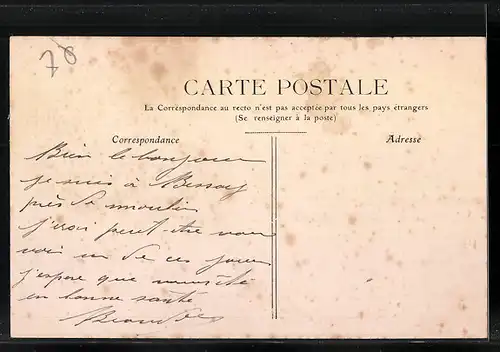 78
CARTE POSTALE
La Correspondance au recto n'est pas acceptée par tous les pays étrangers
(Se renseigner à la poste)
Correspondance
Adresse
Bien le bonjour
je suis à Bessay
près de moulin
j'irai peut-etre vous
voir un de ces jours
j'espère que vous êtes
en bonne santé